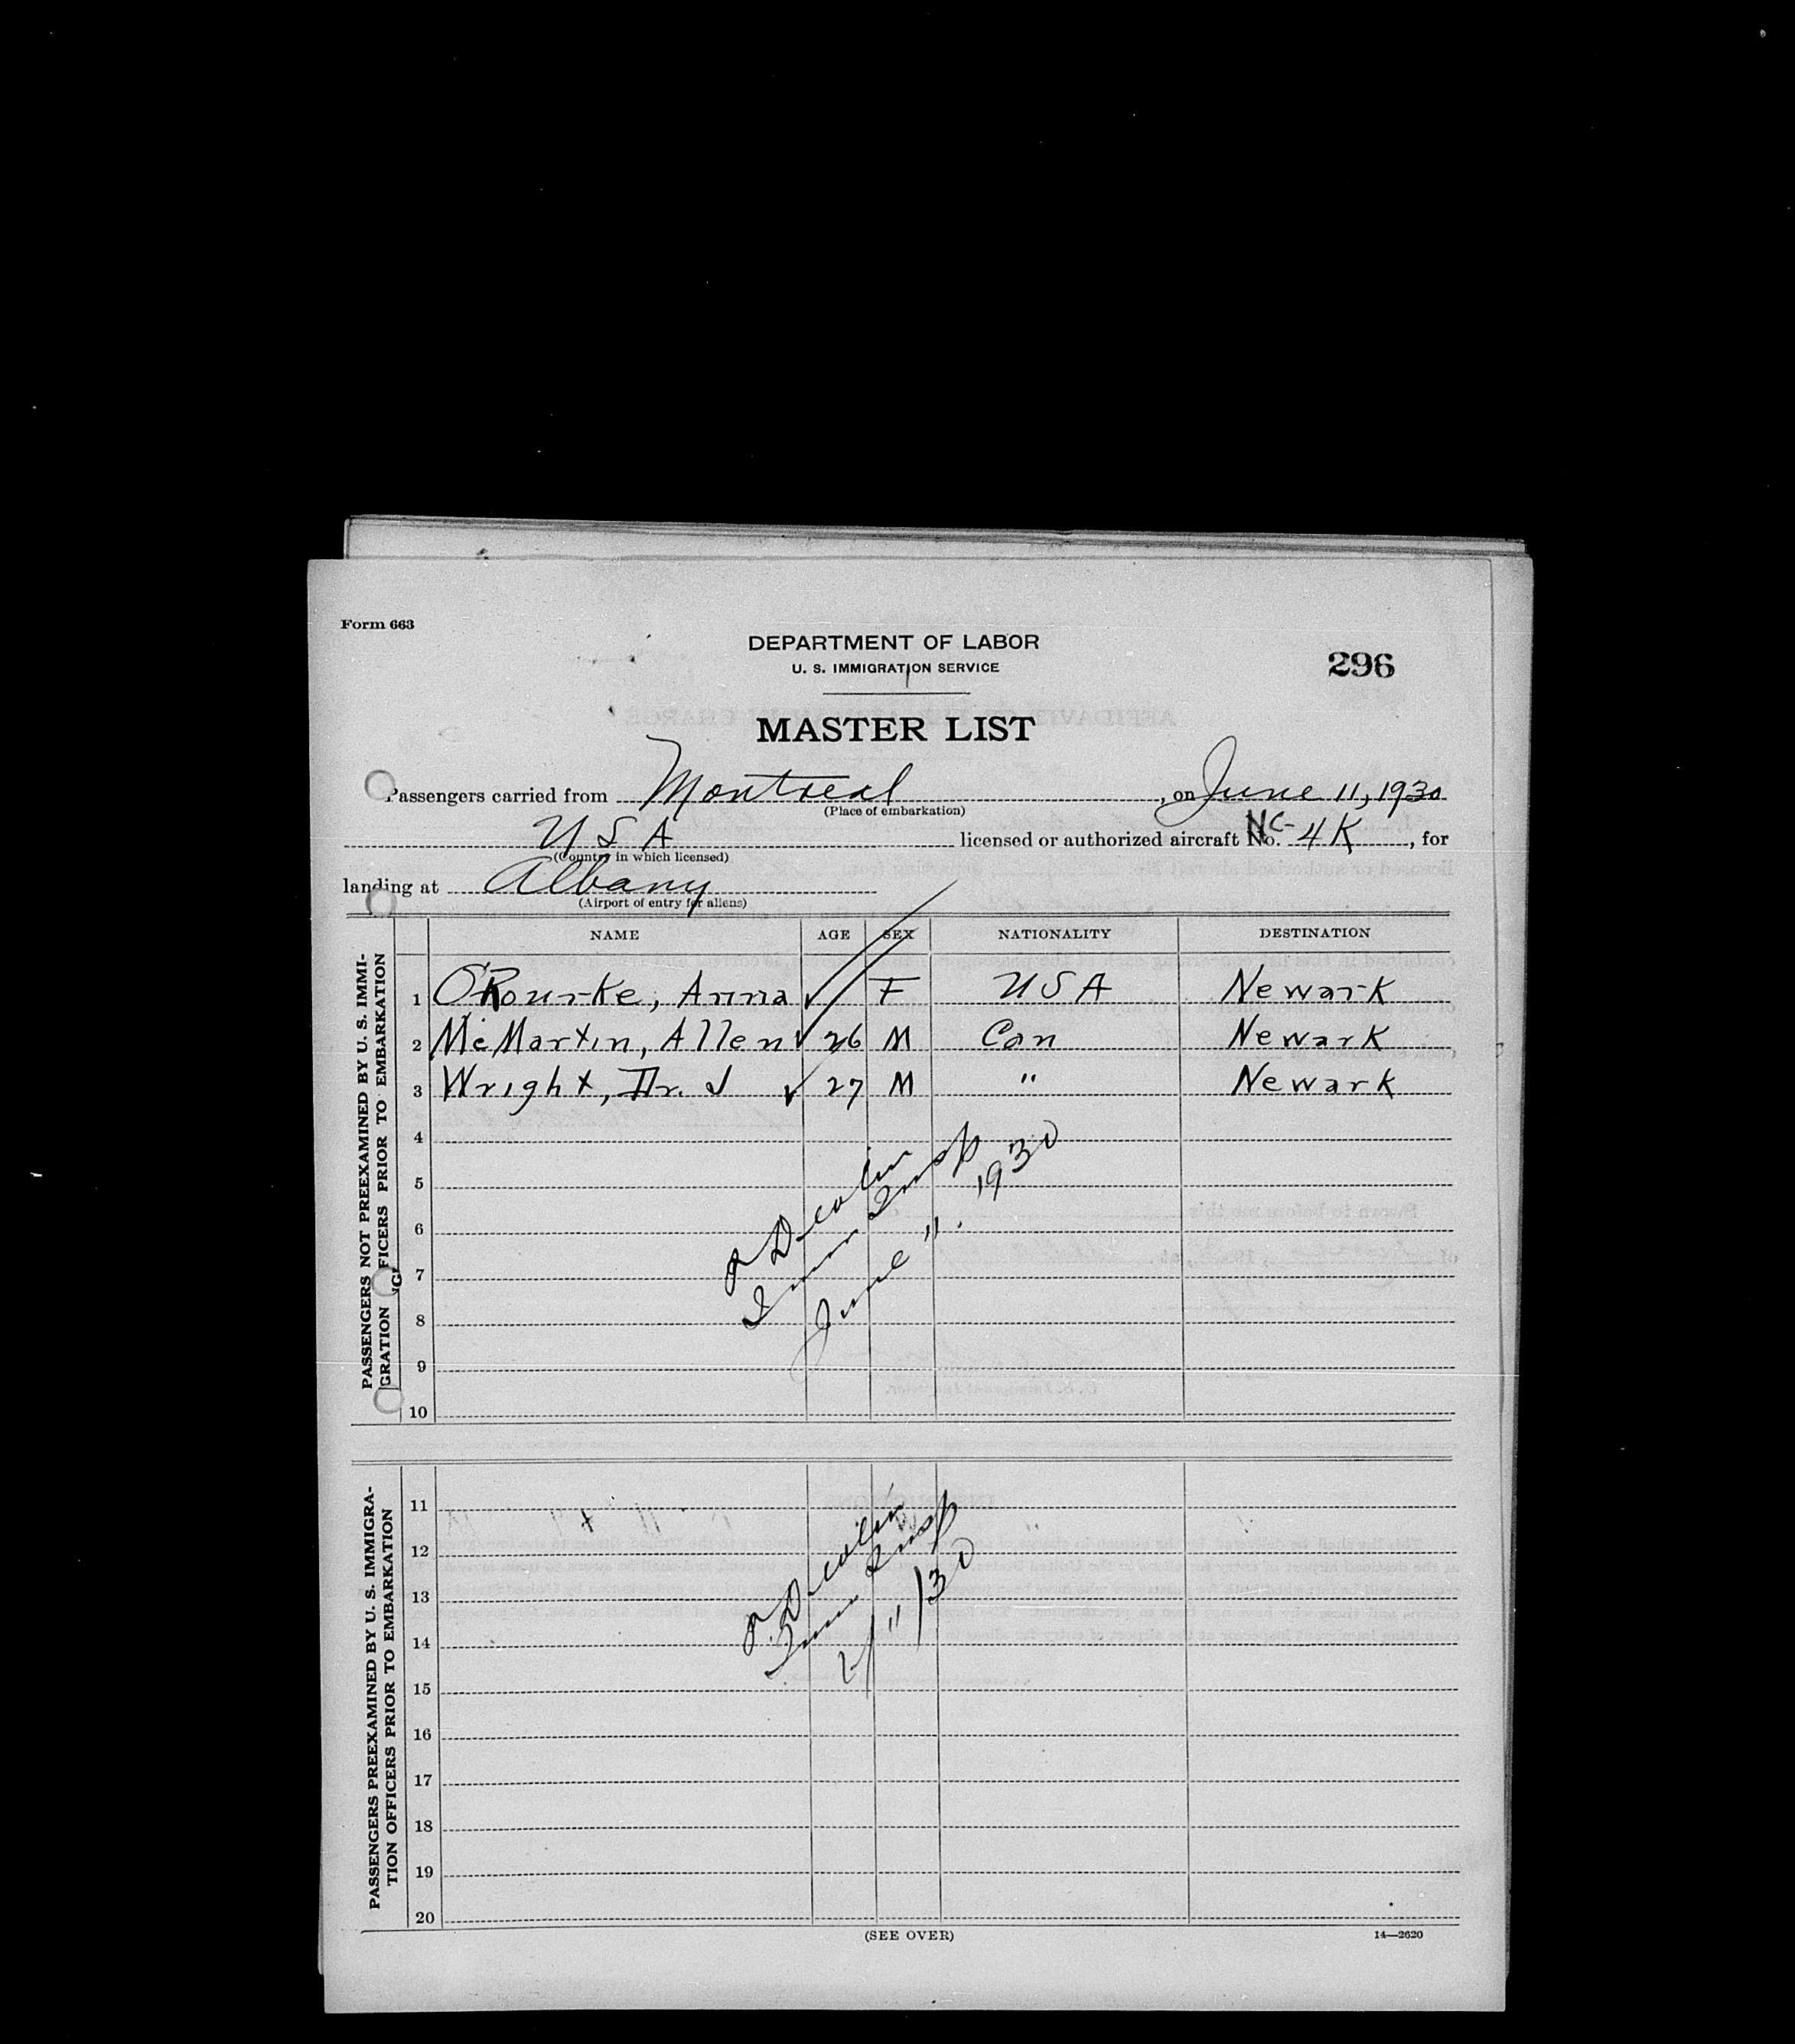 Form 663
DEPARTMENT OF LABOR
U. S. IMMIGRATION SERVICE
296
MASTER LIST
Passengers carried from Montreal, on June 11, 1930
(Place of embarkation)
U S A licensed or authorized aircraft No. NC-4K, for
(Country in which licensed)
landing at Albany
(Airport of entry for aliens)
NAME AGE SEX NATIONALITY DESTINATION
PASSENGERS NOT PREEXAMINED BY U. S. IMMI-
GRATION OFFICERS PRIOR TO EMBARKATION
1 O'Rourke, Anna F USA Newark
2 McMartin, Allen 26 M Can Newark
3 Wright, Dr. J 27 M " Newark
4
5
6
7
8
9
10
Imm Insp
June 11. 1930
PASSENGERS PREEXAMINED BY U. S. IMMIGRA-
TION OFFICERS PRIOR TO EMBARKATION
11
12
13
14
15
16
17
18
19
20
Imm Insp
(SEE OVER)
14—2620